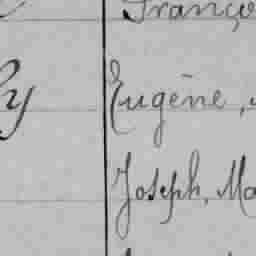 Franço
Eugène,
Joseph, Ma